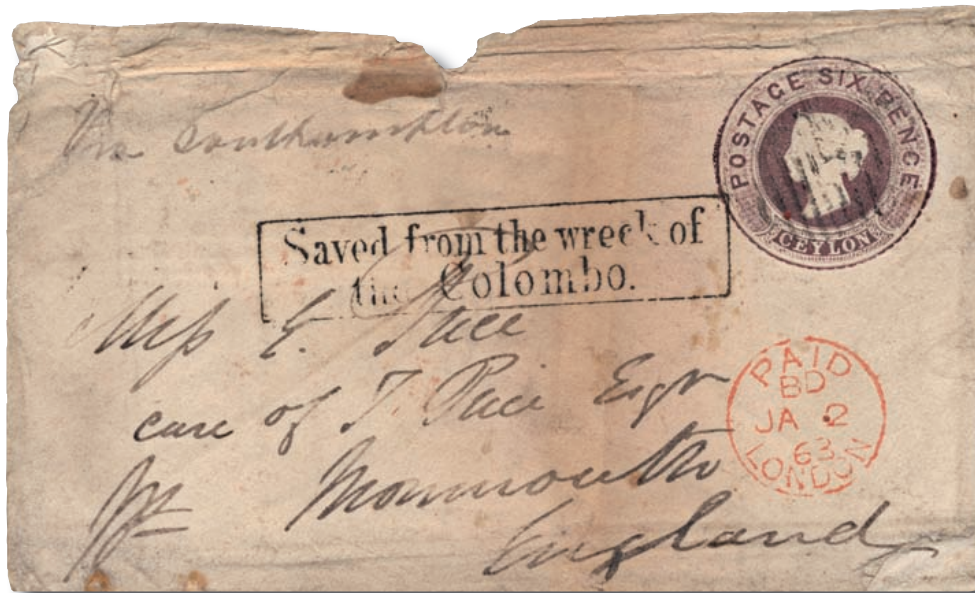 Via Southampton
POSTAGE SIX PENCE
CEYLON
Saved from the wreck of
the Colombo.
Miss E.
care of T Esqr
Monmouth
England
PAID
BD
JA 2
63
LONDON